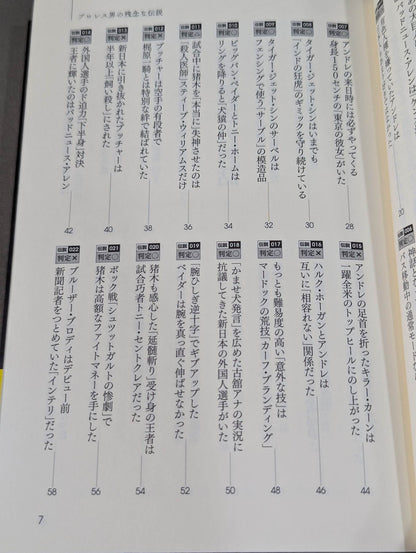 プロレス男の残念な伝説
伝説 007 判定◎
アンドレの来日時には必ずやってくる
身長150センチの「東京の彼女」がいた
28
伝説 008 判定◎
タイガー・ジェット・シンはいまでも
「インドの狂虎」のギミックを守り続けている
30
伝説 009 判定◎
タイガー・ジェット・シンのサーベルは
フェンシングで使う「サーブル」の模造品
32
伝説 010 判定◎
ビッグバン・ベイダーとトニー・ホームは
リングを降りると「犬猿の仲」だった
34
伝説 011 判定△
試合中に猪木を「本当に」失神させたのは
「殺人医師」スティーブ・ウィリアムスだけ
36
伝説 012 判定×
ブッチャーは空手の有段者で
梶原一騎とは特別な絆で結ばれていた
38
伝説 013 判定×
新日本に引き抜かれたブッチャーは
半年以上「飼い殺し」にされた
40
伝説 014 判定◎
外国人選手のド迫力「下半身」対決
王者に輝いたのはバッドニュース・アレン
42
伝説 015 判定×
アンドレの足首を折ったキラー・カーンは
一躍全米のトップヒールにのし上がった
44
伝説 016 判定◎
ハルク・ホーガンとアンドレは
互いに「相容れない」関係だった
46
伝説 017 判定◎
もっとも難易度の高い「意外な技」は
マードックの荒技「カーフ・ブランディング」
48
伝説 018 判定◎
「かませ犬発言」を広めた古舘アナの実況に
抗議してきた新日本の外国人選手がいた
50
伝説 019 判定◎
「腕ひしぎ逆十字」でギブアップした
ベイダーは腕を真っ直ぐ伸ばせなかった
52
伝説 020 判定◎
猪木も感心した「延髄斬り」受け身の王者は
試合巧者トニー・セントクレアだった
54
伝説 021 判定×
ボック戦「シュツットガルトの惨劇」で
猪木は高額なファイトマネーを手にした
56
伝説 022 判定◎
ブルーザー・ブロディはデビュー前
新聞記者をつとめていた「インテリ」だった
58
7
20